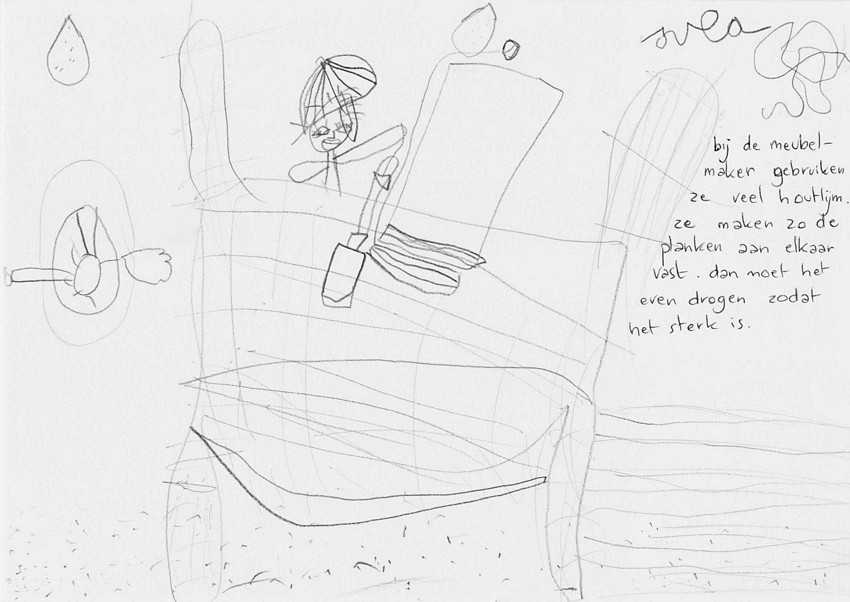 svea
bij de meubel-
maker gebruiken
ze veel houtlijm.
ze maken zo de
planken aan elkaar
vast. dan moet het
even drogen zodat
het sterk is.